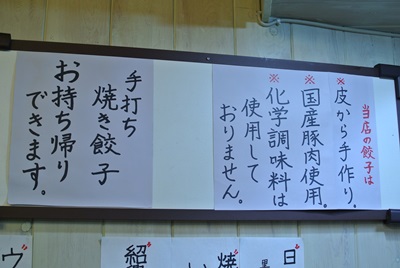 当店の餃子は
※皮から手作り。
※国産豚肉使用。
※化学調味料は
使用して
おりません。
手打ち
焼き餃子
お持ち帰り
できます。
日
焼
紹
ウ